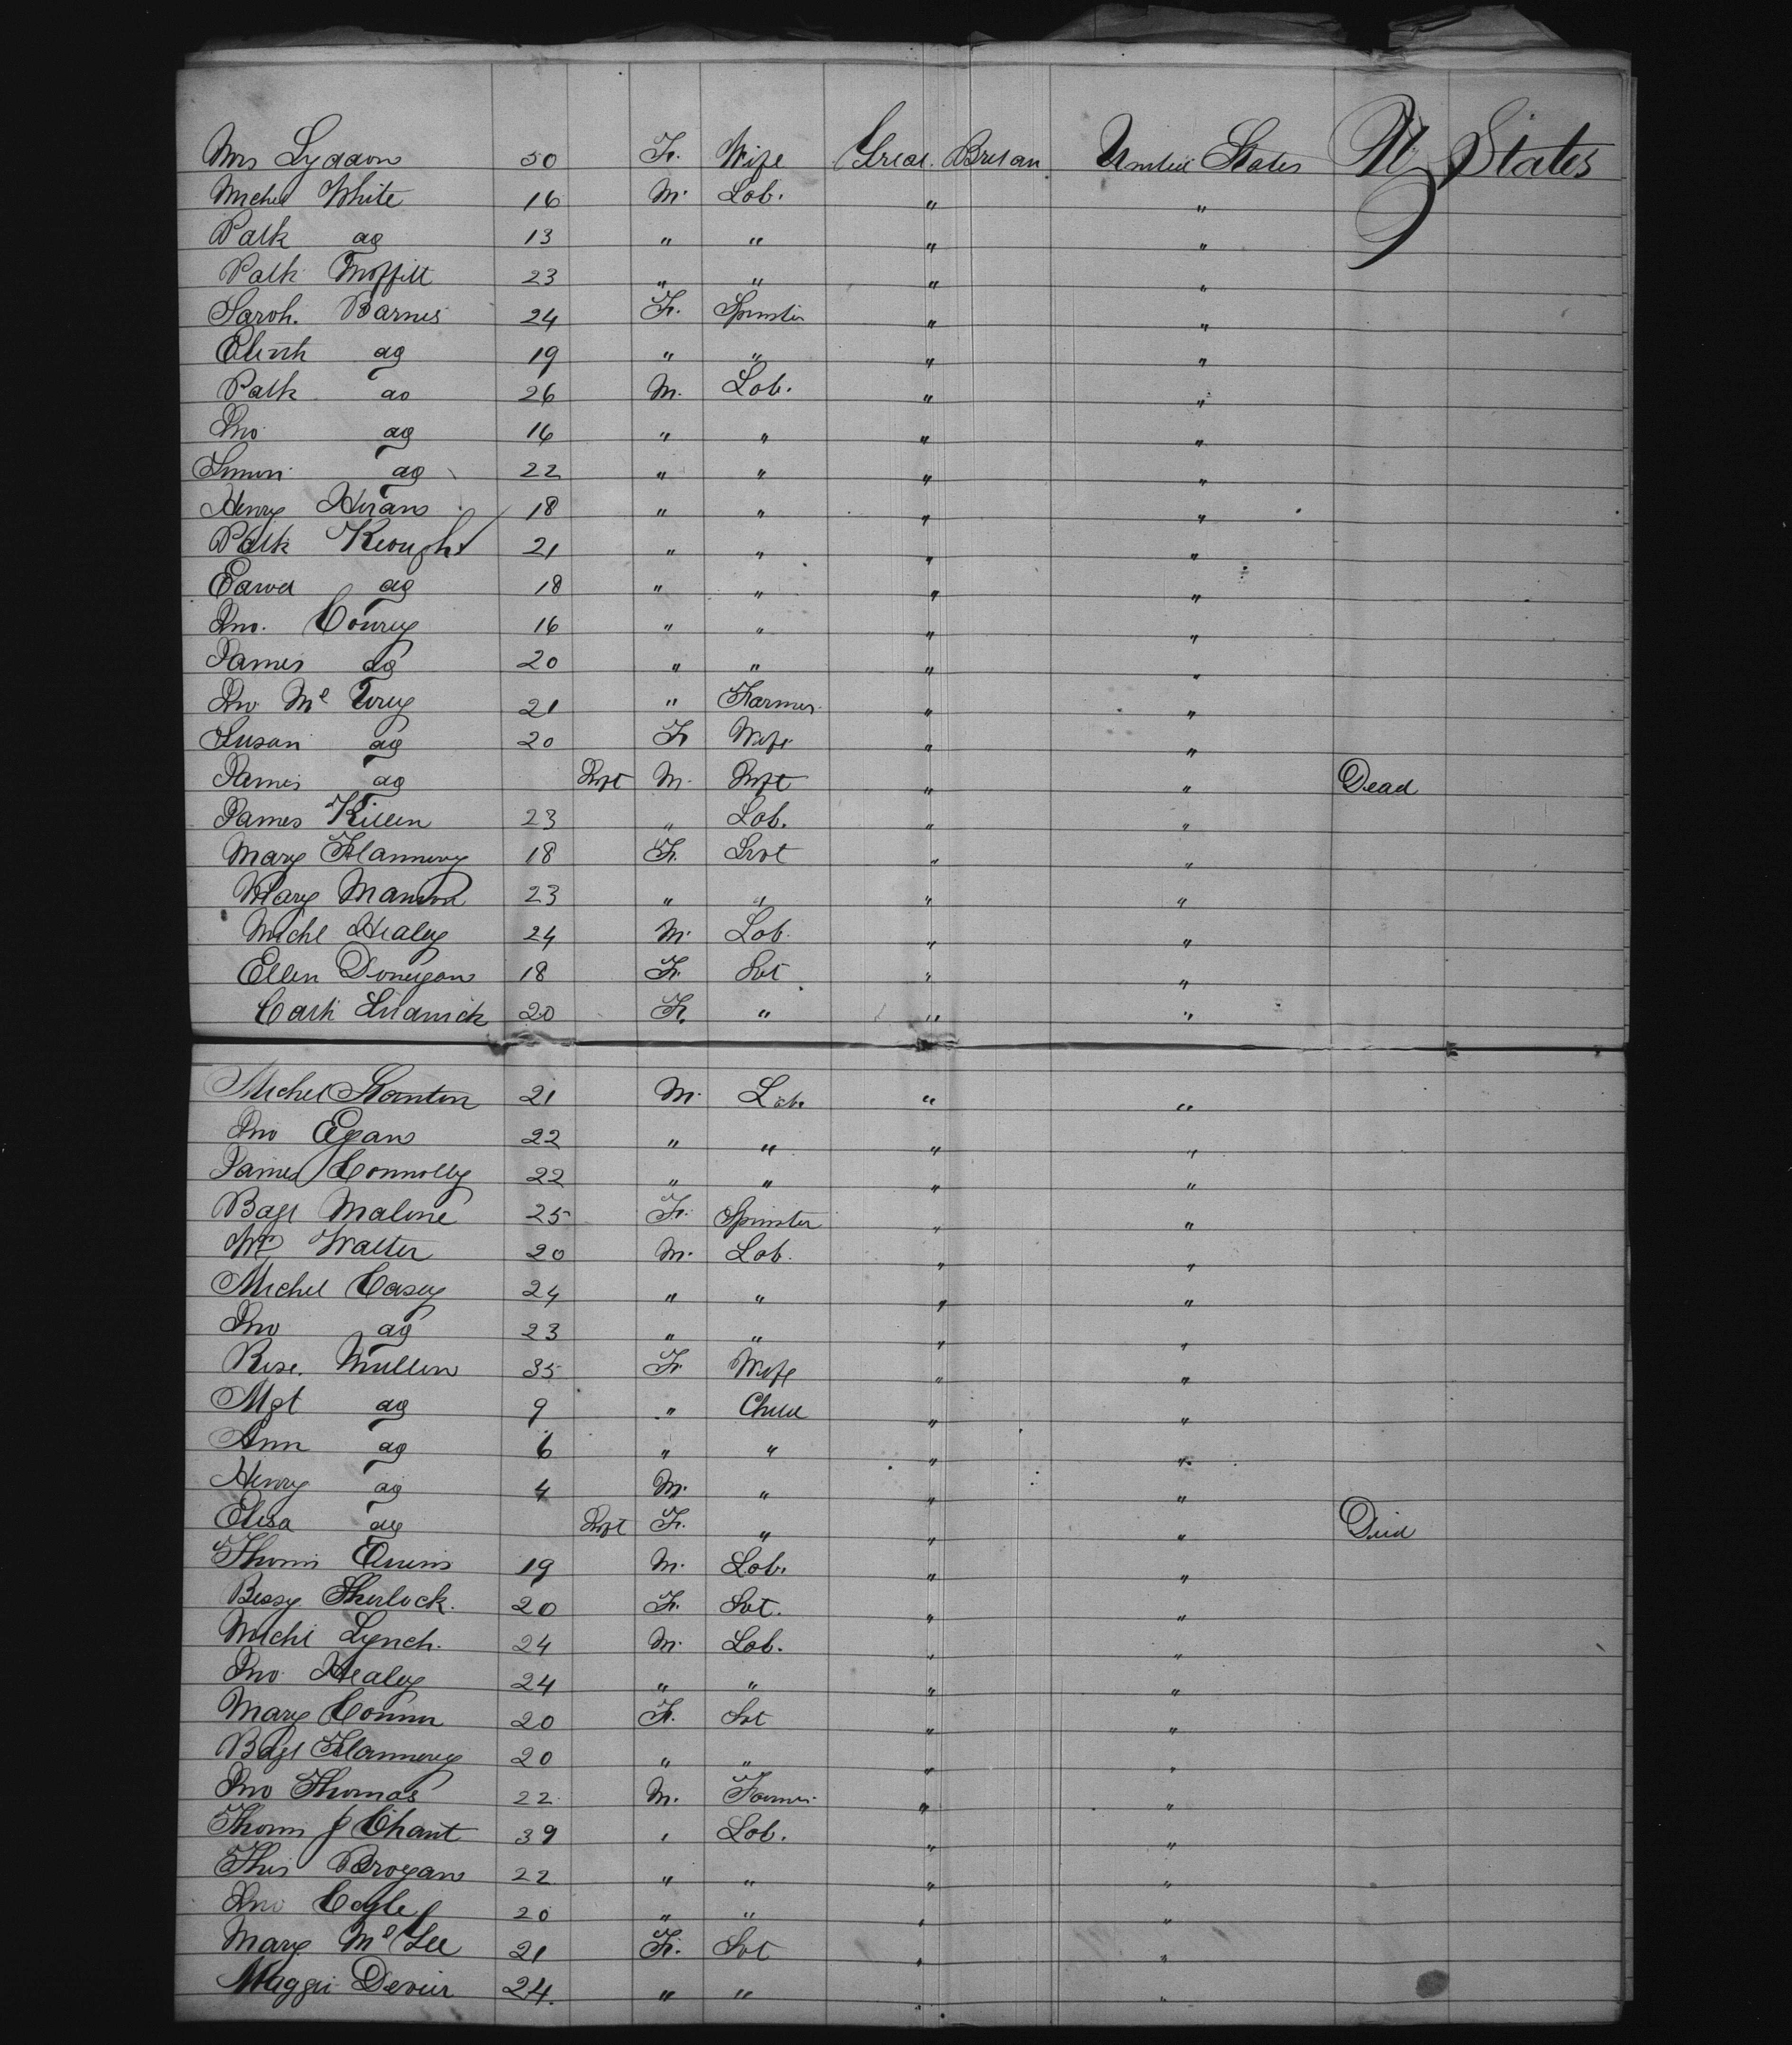 Mrs Lyddon 50 F. Wife Great Britan United States U States
Michel White 16 M. Lab. " "
Patk do 13 " " " "
Patk Moffitt 23 " " " "
Sarah. Barnes 24 F. Spinster " "
Elizth do 19 " " " "
Patk do 26 M. Lab. " "
Jno do 16 " " " "
Simon do 22 " " " "
Henry 18 " " " "
Patk Keough 21 " " " "
Edwd do 18 " " " "
Jno. Conrey 16 " " " "
James do 20 " " " "
Jno Mc 21 " Farmer " "
Susan do 20 F Wife " "
James do Inft M. Inft " " Dead
James Killen 23 " Lab. " "
Mary Flannery 18 F. Srvt " "
Mary 23 " " " "
Michl Healey 24 M. Lab. " "
Ellen Donegan 18 F. Svt " "
Cath 20 F. " " "
Michel Stanton 21 M. Lab. " "
Jno Egan 22 " " " "
James Connolly 22 " " " "
Bagt Malone 25 F. Spinster " "
Wm Walter 20 M. Lab. " "
Michel Casey 24 " " " "
Jno do 23 " " " "
Rose. Mullen 35 F. Wife " "
Mgt do 9 " Child " "
Ann do 6 " " " "
Henry do 4 M. " " "
Elisa do Inft F. " " " Died
Thoms 19 M. Lab. " "
Bessy Sherlock. 20 F. Svt. " "
Michl Lynch. 24 M. Lab. " "
Jno Healey 24 " " " "
Mary 20 F. Svt " "
Bdgt Flannery 20 " " " "
Jno Thomas 22 M. Farmer " "
Thoms J Chant 39 " Lab. " "
Ths Brogan 22 " " " "
Jno Cogle 20 " " " "
Mary 21 F. Svt " "
Maggie Devier 24. " " " "